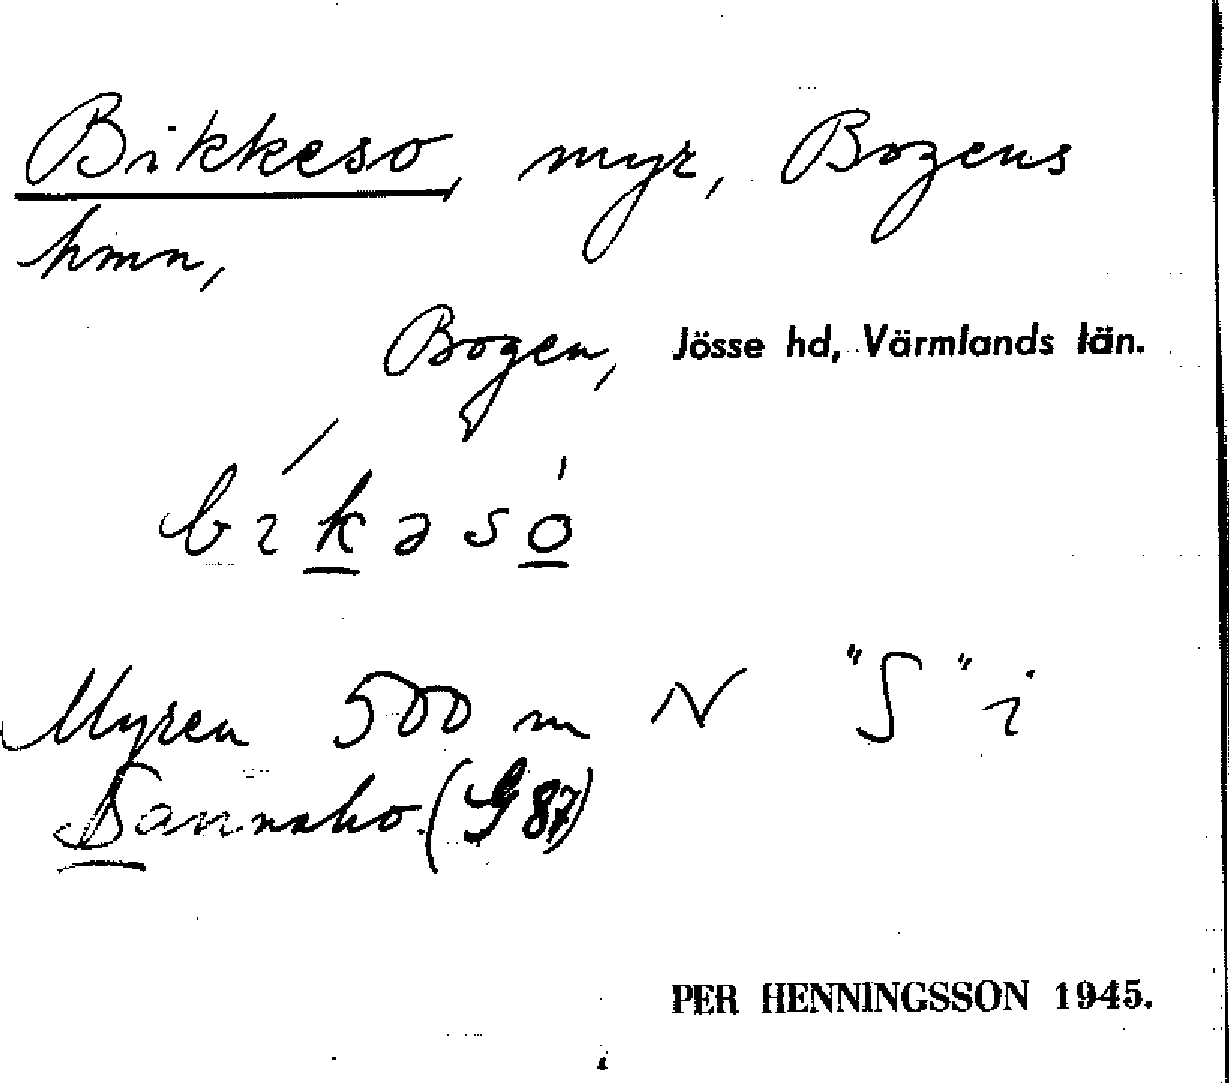 Bikkeso, myr, Bogens
hmn,
Bogen, Jösse hd, Värmlands län.
bikəsó
Myren 500 m N "S" i
Sannaho (G 87)
PER HENNINGSSON 1945.